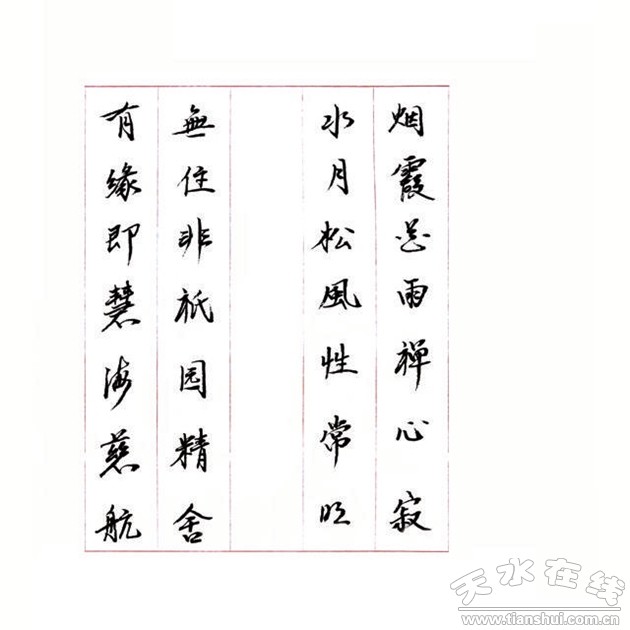 烟霞雨禪心寂
水月松風性常
無住非祇园精舍
有缘即慧海慈航
天水在线
www.tianshui.com.cn